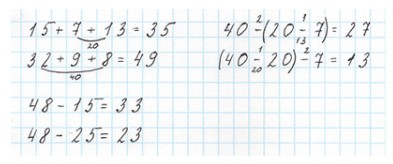 15 + 7 + 13 = 35
20
32 + 9 + 8 = 49
40
48 - 15 = 33
48 - 25 = 23
2 1
40 - (20 - 7) = 27
13
1 2
(40 - 20) - 7 = 13
20